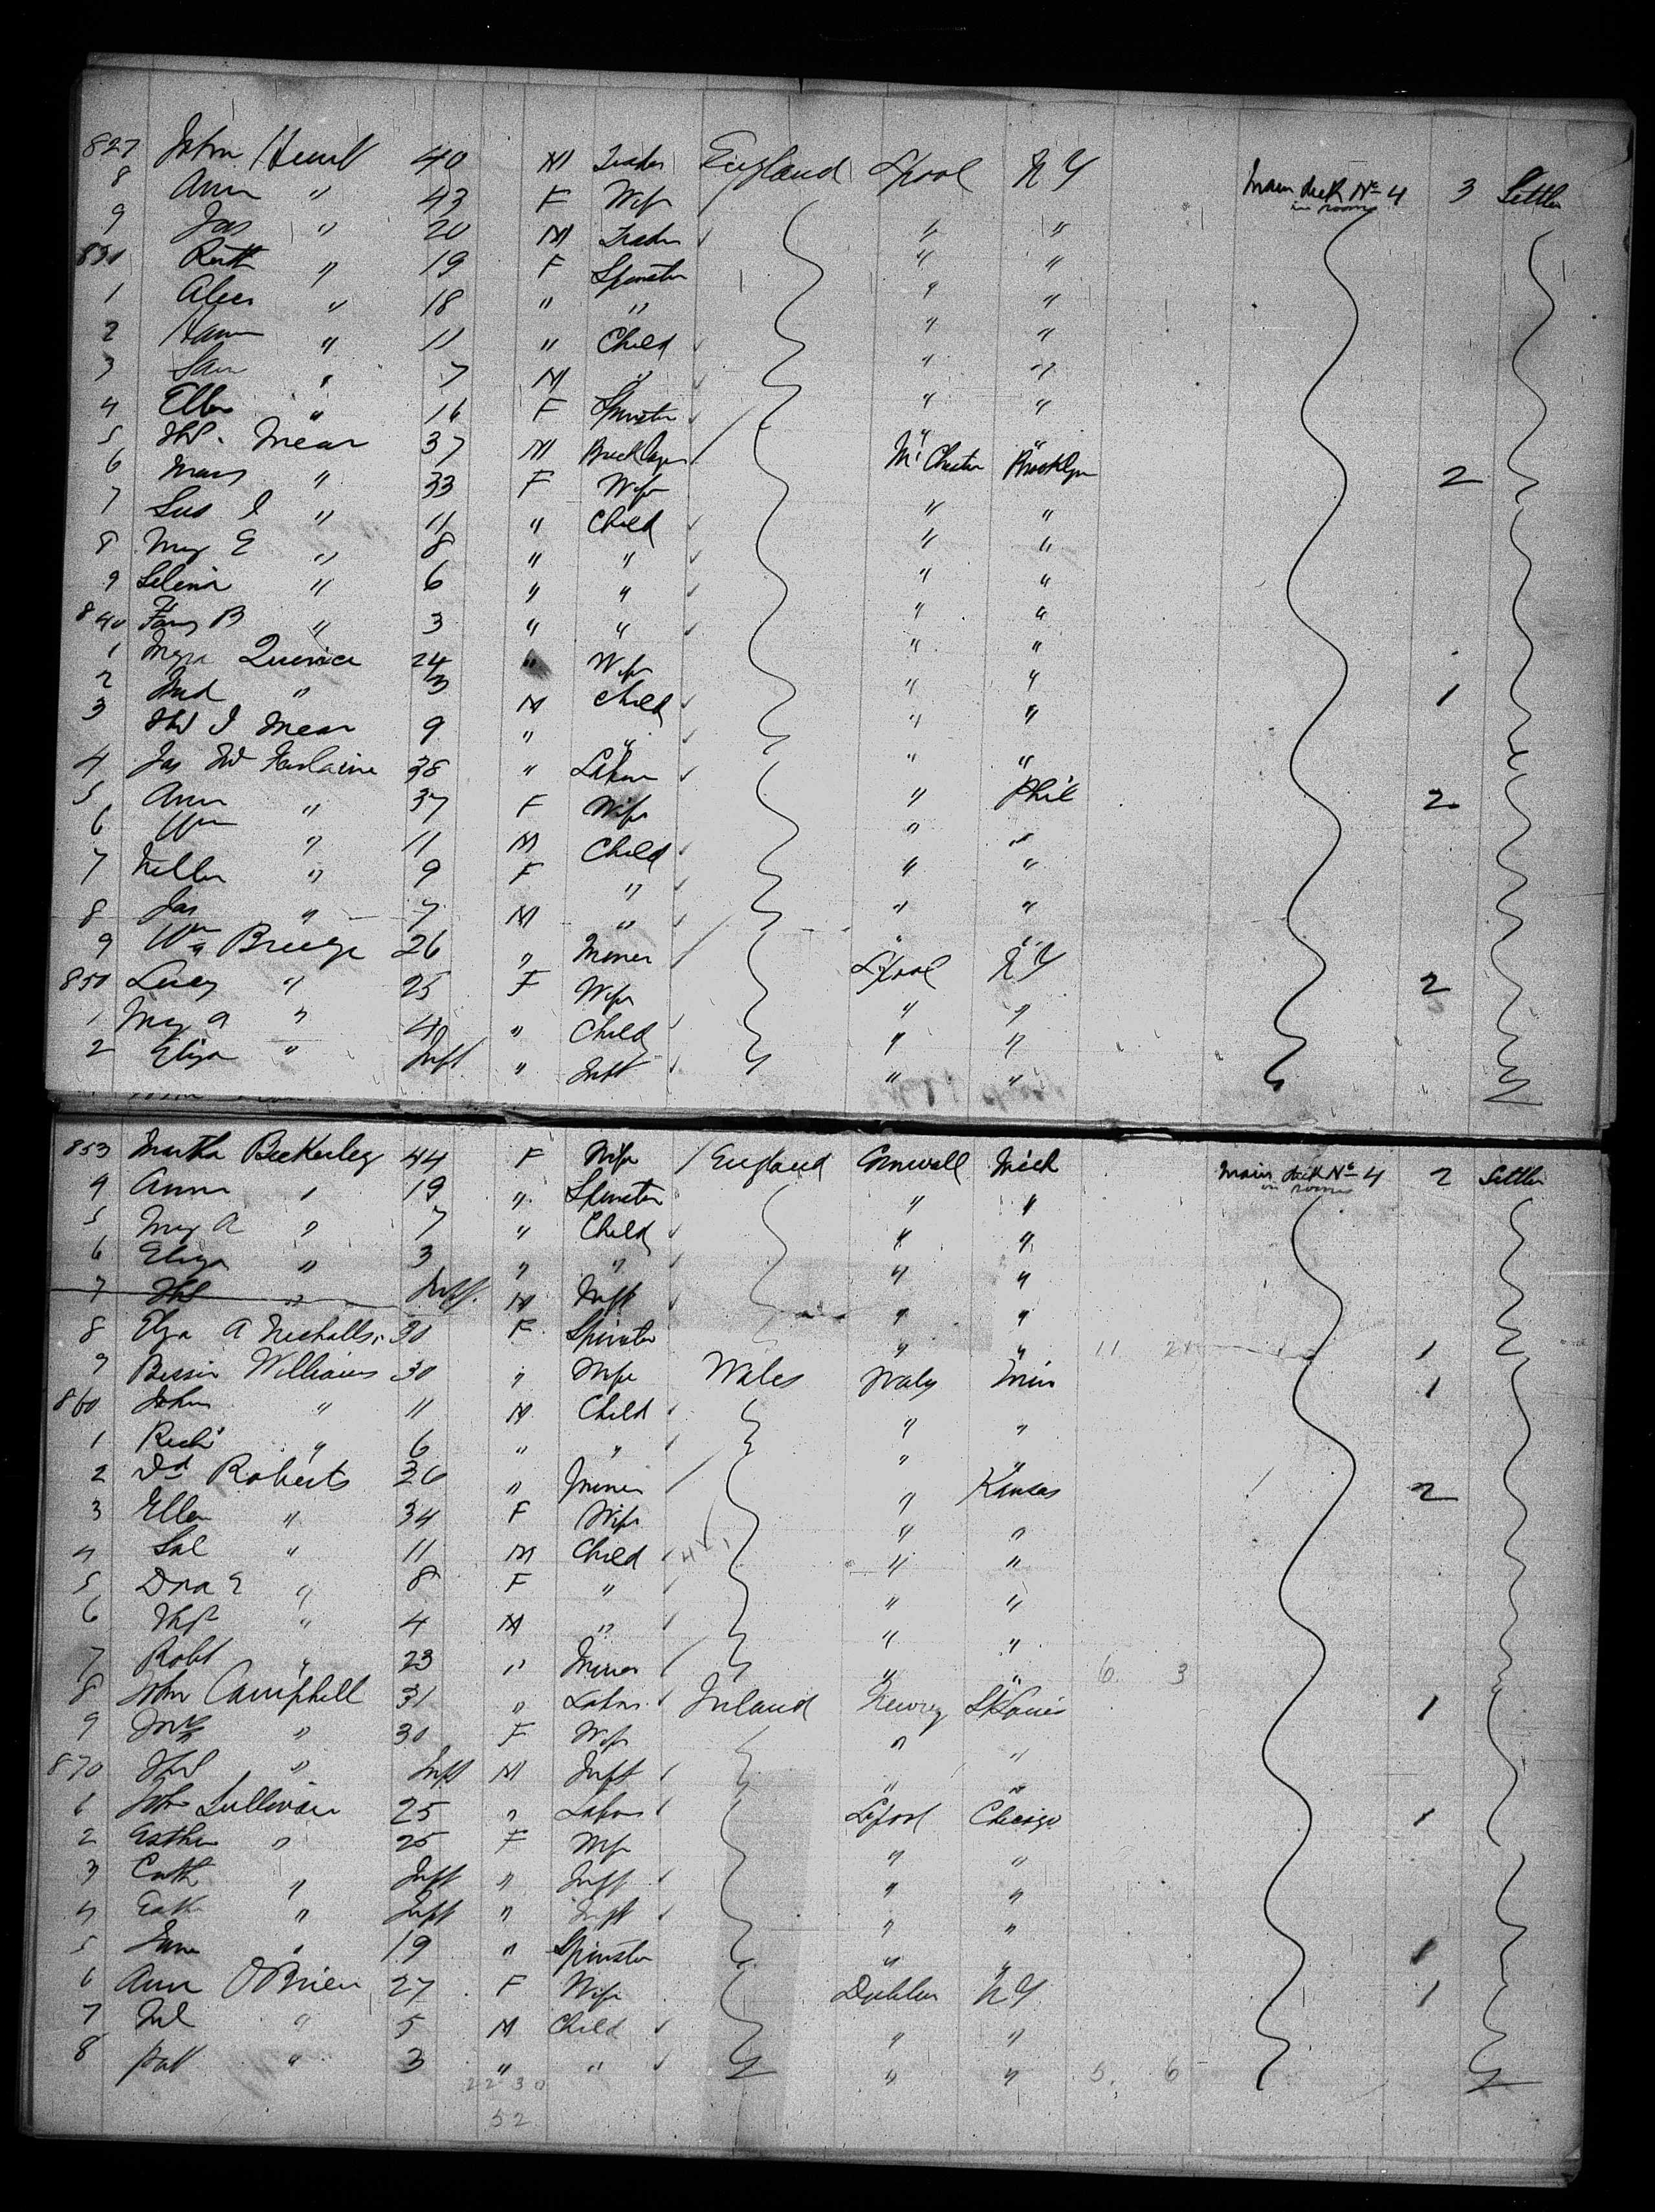 827 John Hunt 40 M Trader England Lpool N Y Main deck No 4 in rooms 3 Settler
8 Ann " 43 F Wife " "
9 Jas " 20 M Trader " "
830 Ruth " 19 F Spinster " "
1 Alice " 18 " " " "
2 Hann " 11 " Child " "
3 Sam " 7 M " " "
4 Ellen " 16 F Spinster " "
5 Ths Mear 37 M Bricklayer McChester Brooklyn 2
6 Mary " 33 F Wife " "
7 Sus " 11 " Child " "
8 My E " 8 " " " "
9 Selina " 6 " " " "
840 Fany B " 3 " " " "
1 24 " Wife " " 1
2 " 3 M Child " "
3 Ths J Mear 9 " " " "
4 Jas 38 " Labor " Phil 2
5 Ann " 37 F Wife " "
6 Wm " 11 M Child " "
7 " 9 F " " "
8 Jas " 7 M " " "
9 Wm Breeze 26 " Miner Lpool N Y 2
850 Lucy " 25 F Wife " "
1 My A " 4 " Child " "
2 Eliza " Inft " Inft " "
853 Martha Beckerleg 44 F Wife England Cornwall Mich Main deck No 4 in rooms 2 Settler
4 Annie " 19 " Spinster " "
5 My A " 7 " Child " "
6 Eliza " 3 " " " "
7 Ths " Inft M Inft " "
8 Elza A Nicholls 30 F Spinster " " 11 1
9 Bessie Williams 30 " Wife Wales Wales 1
860 John " 11 M Child " "
1 Richd " 6 " " " "
2 Dd Roberts 36 " Miner " Kansas 2
3 Ellen " 34 F Wife " "
4 " 11 M Child " "
5 " 8 F " " "
6 Ths " 4 M " " "
7 Robt " 23 " Miner " " 6 3
8 John Campbell 31 " Labor Ireland Newry St Louis 1
9 " 30 F Wife " "
870 Ths " Inft M Inft " "
1 John Sullivan 25 " Labor Lpool Chicago 1
2 Esther " 25 F Wife " "
3 Cath " Inft " Inft " "
4 " Inft " Inft " "
5 Jane " 19 " Spinster " " 1
6 Ann OBrien 27 F Wife Dublin N Y 1
7 " 5 M Child " "
8 Pat " 3 " " " " 5 6
22 30
52